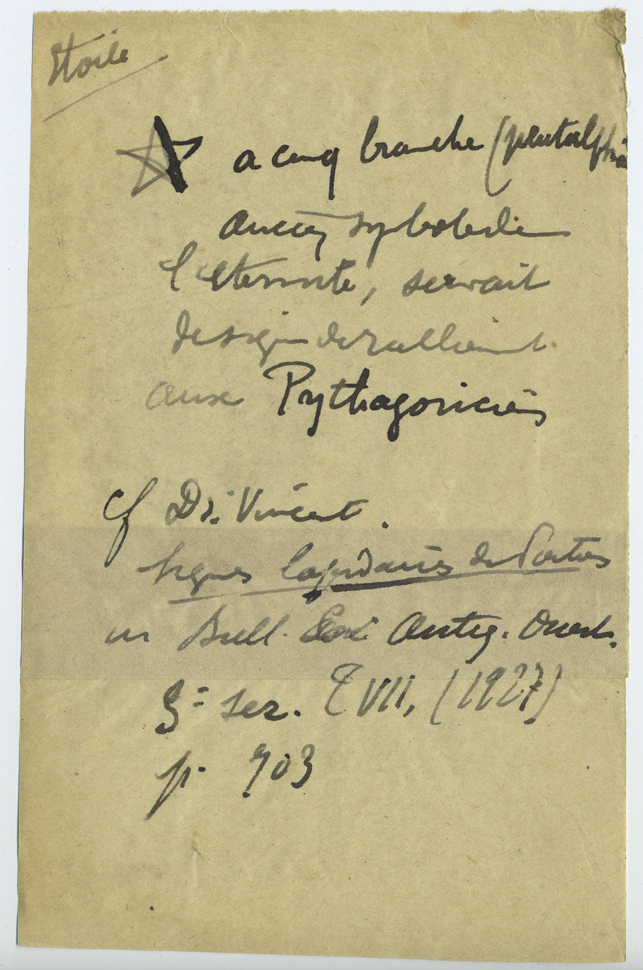 Etoile
a cinq branche (pentalpha
ancien symbole de
l'éternité, servait
de signe de ralliement
aux Pythagoriciens
cf Dr. Vincent.
Signes lapidaires du Poitou
in Bull. Soc. Antiq. Ouest.
3e ser. T VII, (1927)
p. 703